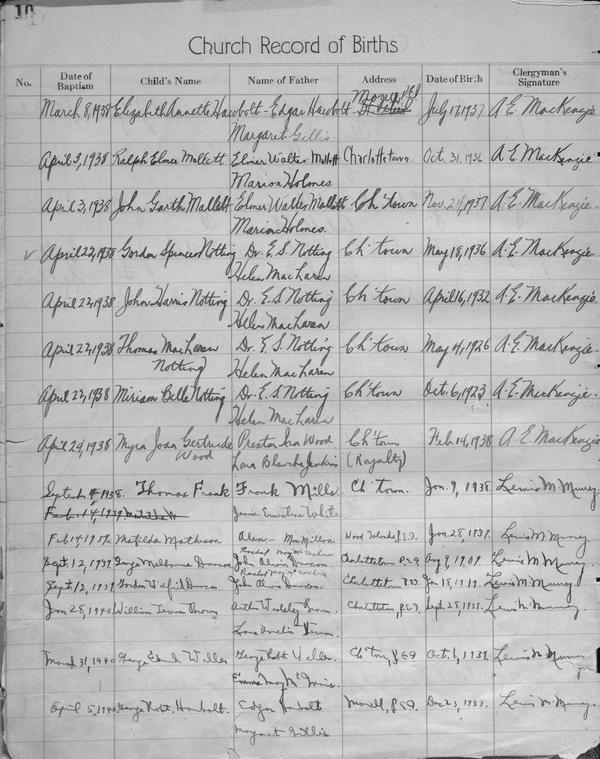 10
Church Record of Births
No. Date of Baptism Child's Name Name of Father Address Date of Birth Clergyman's Signature
March 8, 1938 Elizabeth Annette Hawbolt - Edgar Hawbolt Morell PEI July 17 1937 A. E. MacKenzie
Margaret Gillis
April 3, 1938 Ralph Elmer Mallett Elmer Walter Mallett Charlottetown Oct. 31, 1936 A. E. MacKenzie
Marion Holmes
April 3, 1938 John Garth Mallett Elmer Walter Mallett Ch'town Nov. 1937 A. E. MacKenzie
Marion Holmes.
April 22, 1938 Gordon Spencer Notting Dr. E. S. Notting Ch'town May 18, 1936 A. E. MacKenzie
Helen MacLaren
April 22, 1938 John Harris Notting Dr. E. S. Notting Ch'town April 16, 1932 A. E. MacKenzie.
Helen MacLaren
April 22, 1938 Thomas MacLaren Dr. E. S. Notting Ch'town May 4, 1926 A. E. MacKenzie.
Notting Helen MacLaren
April 22, 1938 Miriam Belle Notting Dr. E. S. Notting Ch'town Oct. 6, 1923 A. E. MacKenzie.
Helen MacLaren
April 29, 1938 Myra Joan Gertrude Preston Ira Wood Ch'town Feb 14, 1938 A. E. MacKenzie
Wood Lona Blanche Jenkins (Royalty)
Sept 4, 1938. Thomas Frank Frank Mills Ch'town. Jan. 9, 1938 Lewis M. Murray.
Feb. 14, 1939 Matilda M Jennie Ernestine White
Feb 14, 1939 Matilda Matheson Alan MacMillan Wood Islands, P.E.I. Jan. 28, 1939. Lewis M Murray
Rachel May
Sept. 12, 1939 George Melbourne Duncan John Alvin Duncan Charlottetown P.E.I. Aug 9, 1909. Lewis M. Murray.
Rachel May
Sept. 12, 1939 Gordon Duncan. John Alvin Duncan. Charlottetown Jan 18, 1919. Lewis M. Murray
Jan 28, 1940 William Arthur Charlottetown, P.E.I. Sept. 25, 1939. Lewis M. Murray.
March 31, 1940 George Weller George Robt Weller. Ch'town, P.E.I. Oct. 1, 1939. Lewis M. Murray
Emma May
April 5, 1940 George Robt. Hawbolt. Edgar Hawbolt Morell, P.E.I. Dec 23, Lewis M. Murray.
Margaret Gillis